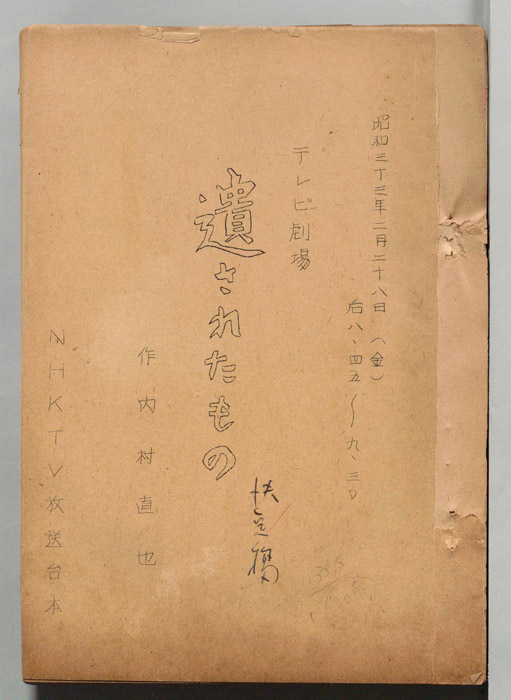 昭和三十三年二月二十八日(金)
后八、四五〜九、三〇
テレビ劇場
遺されたもの
決定稿
作 内村直也
NHKTV放送台本